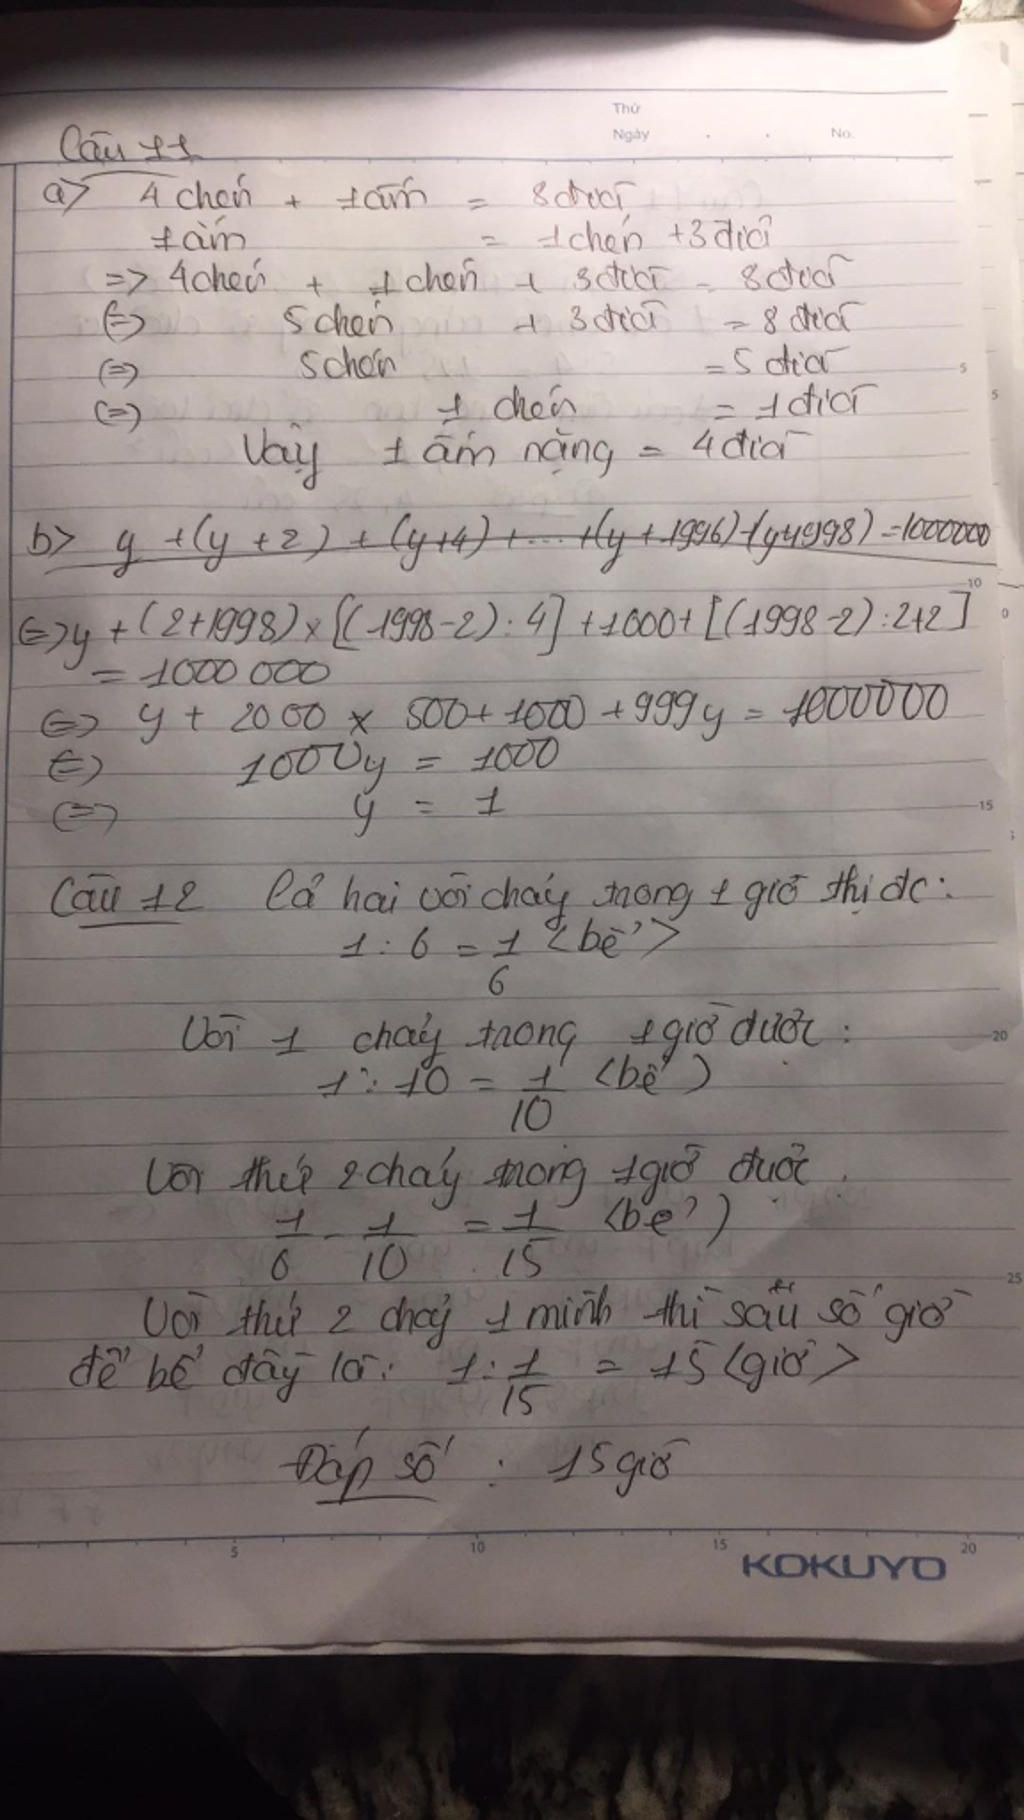 Thứ
Ngày . . No.
Câu 11
a> 4 chén + 1 ấm = 8 đĩa
1 ấm = 1 chén + 3 đĩa
=> 4 chén + 1 chén + 3 đĩa = 8 đĩa
(=) 5 chén + 3 đĩa = 8 đĩa
(=) 5 chén = 5 đĩa
(=) 1 chén = 1 đĩa
Vậy 1 ấm nặng = 4 đĩa
b> y + (y + 2) + (y+4) + ... + (y + 1996) + (y+1998) = 1000000
(=) y + (2+1998) x [(1998-2) : 4] + 1000 + [(1998-2) : 2+2]
= 1000 000
(=) y + 2000 x 500 + 1000 + 999y = 1000000
(=) 1000y = 1000
(=) y = 1
Câu 12 Cả hai vòi chảy trong 1 giờ thị đc:
1 : 6 = 1/6 <bể>
Vòi 1 chảy trong 1 giờ được :
1 : 10 = 1/10 (bể)
Vòi thứ 2 chảy trong 1 giờ được .
1/6 - 1/10 = 1/15 (bể)
Vòi thứ 2 chảy 1 mình thì số giờ
để bể đầy là: 1 : 1/15 = 15 <giờ>
Đáp số : 15 giờ
5 10 15 20
KOKUYO